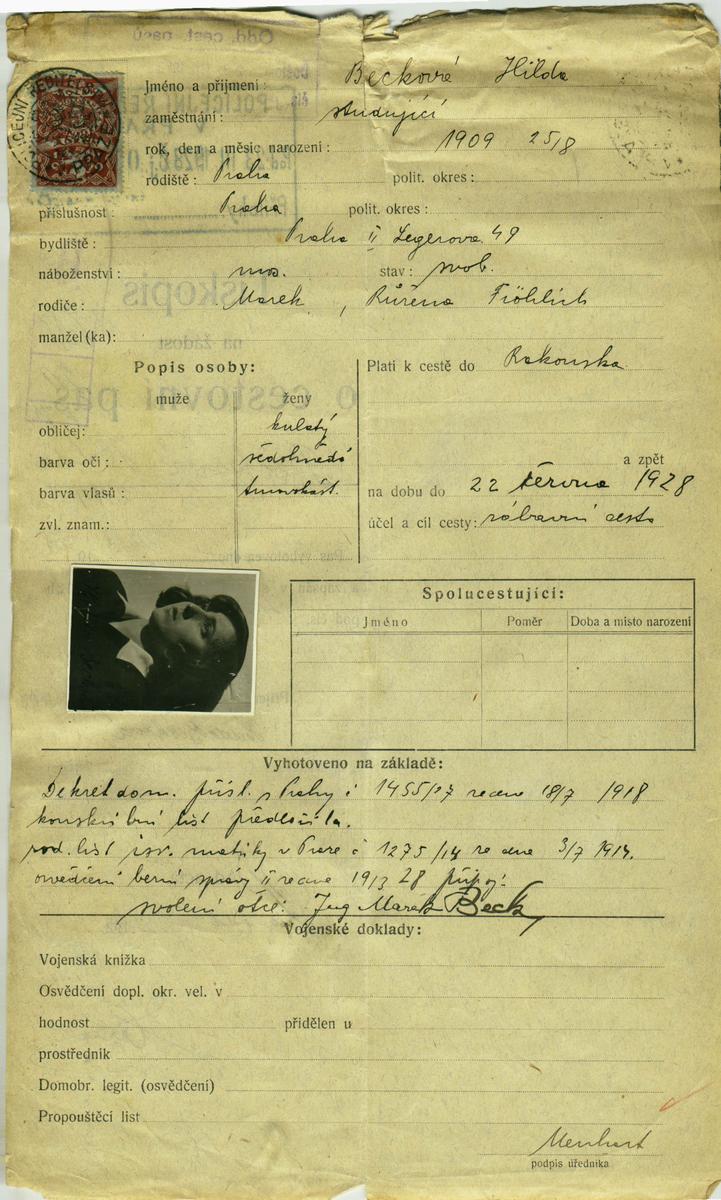 Odd. cest. pasů
Jméno a přijmení: Beckové Hilda
zaměstnání: studující
rok, den a měsíc narození: 1909 25/8
rodiště: Praha polit. okres:
příslušnost: Praha polit. okres:
bydliště: Praha II Legerova 49
náboženství: mos. stav: svob.
rodiče: Marek, Růžena Fröhlich
manžel(ka):
Popis osoby:
muže ženy
obličej: kulatý
barva očí: šedohnědé
barva vlasů: tmavokašt.
zvl. znam.:
Platí k cestě do Rakouska
a zpět
na dobu do 22 června 1928
účel a cíl cesty: zábavní cesta
Spolucestující:
Jméno Poměr Doba a místo narození
Vyhotoveno na základě:
Dekret dom. přísl. z Prahy č 1455/27 ze dne 18/7 1918
konskribční list předložila.
rod. list isr. matriky v Praze č 1275/14 ze dne 3/7 1914.
osvědčení berní správy II ze dne 19/3 28 připoj.
svolení otce: Ing Marek Beck
Vojenské doklady:
Vojenská knížka
Osvědčení dopl. okr. vel. v
hodnost přidělen u
prostředník
Domobr. legit. (osvědčení)
Propouštěcí list
Menhart
podpis úředníka